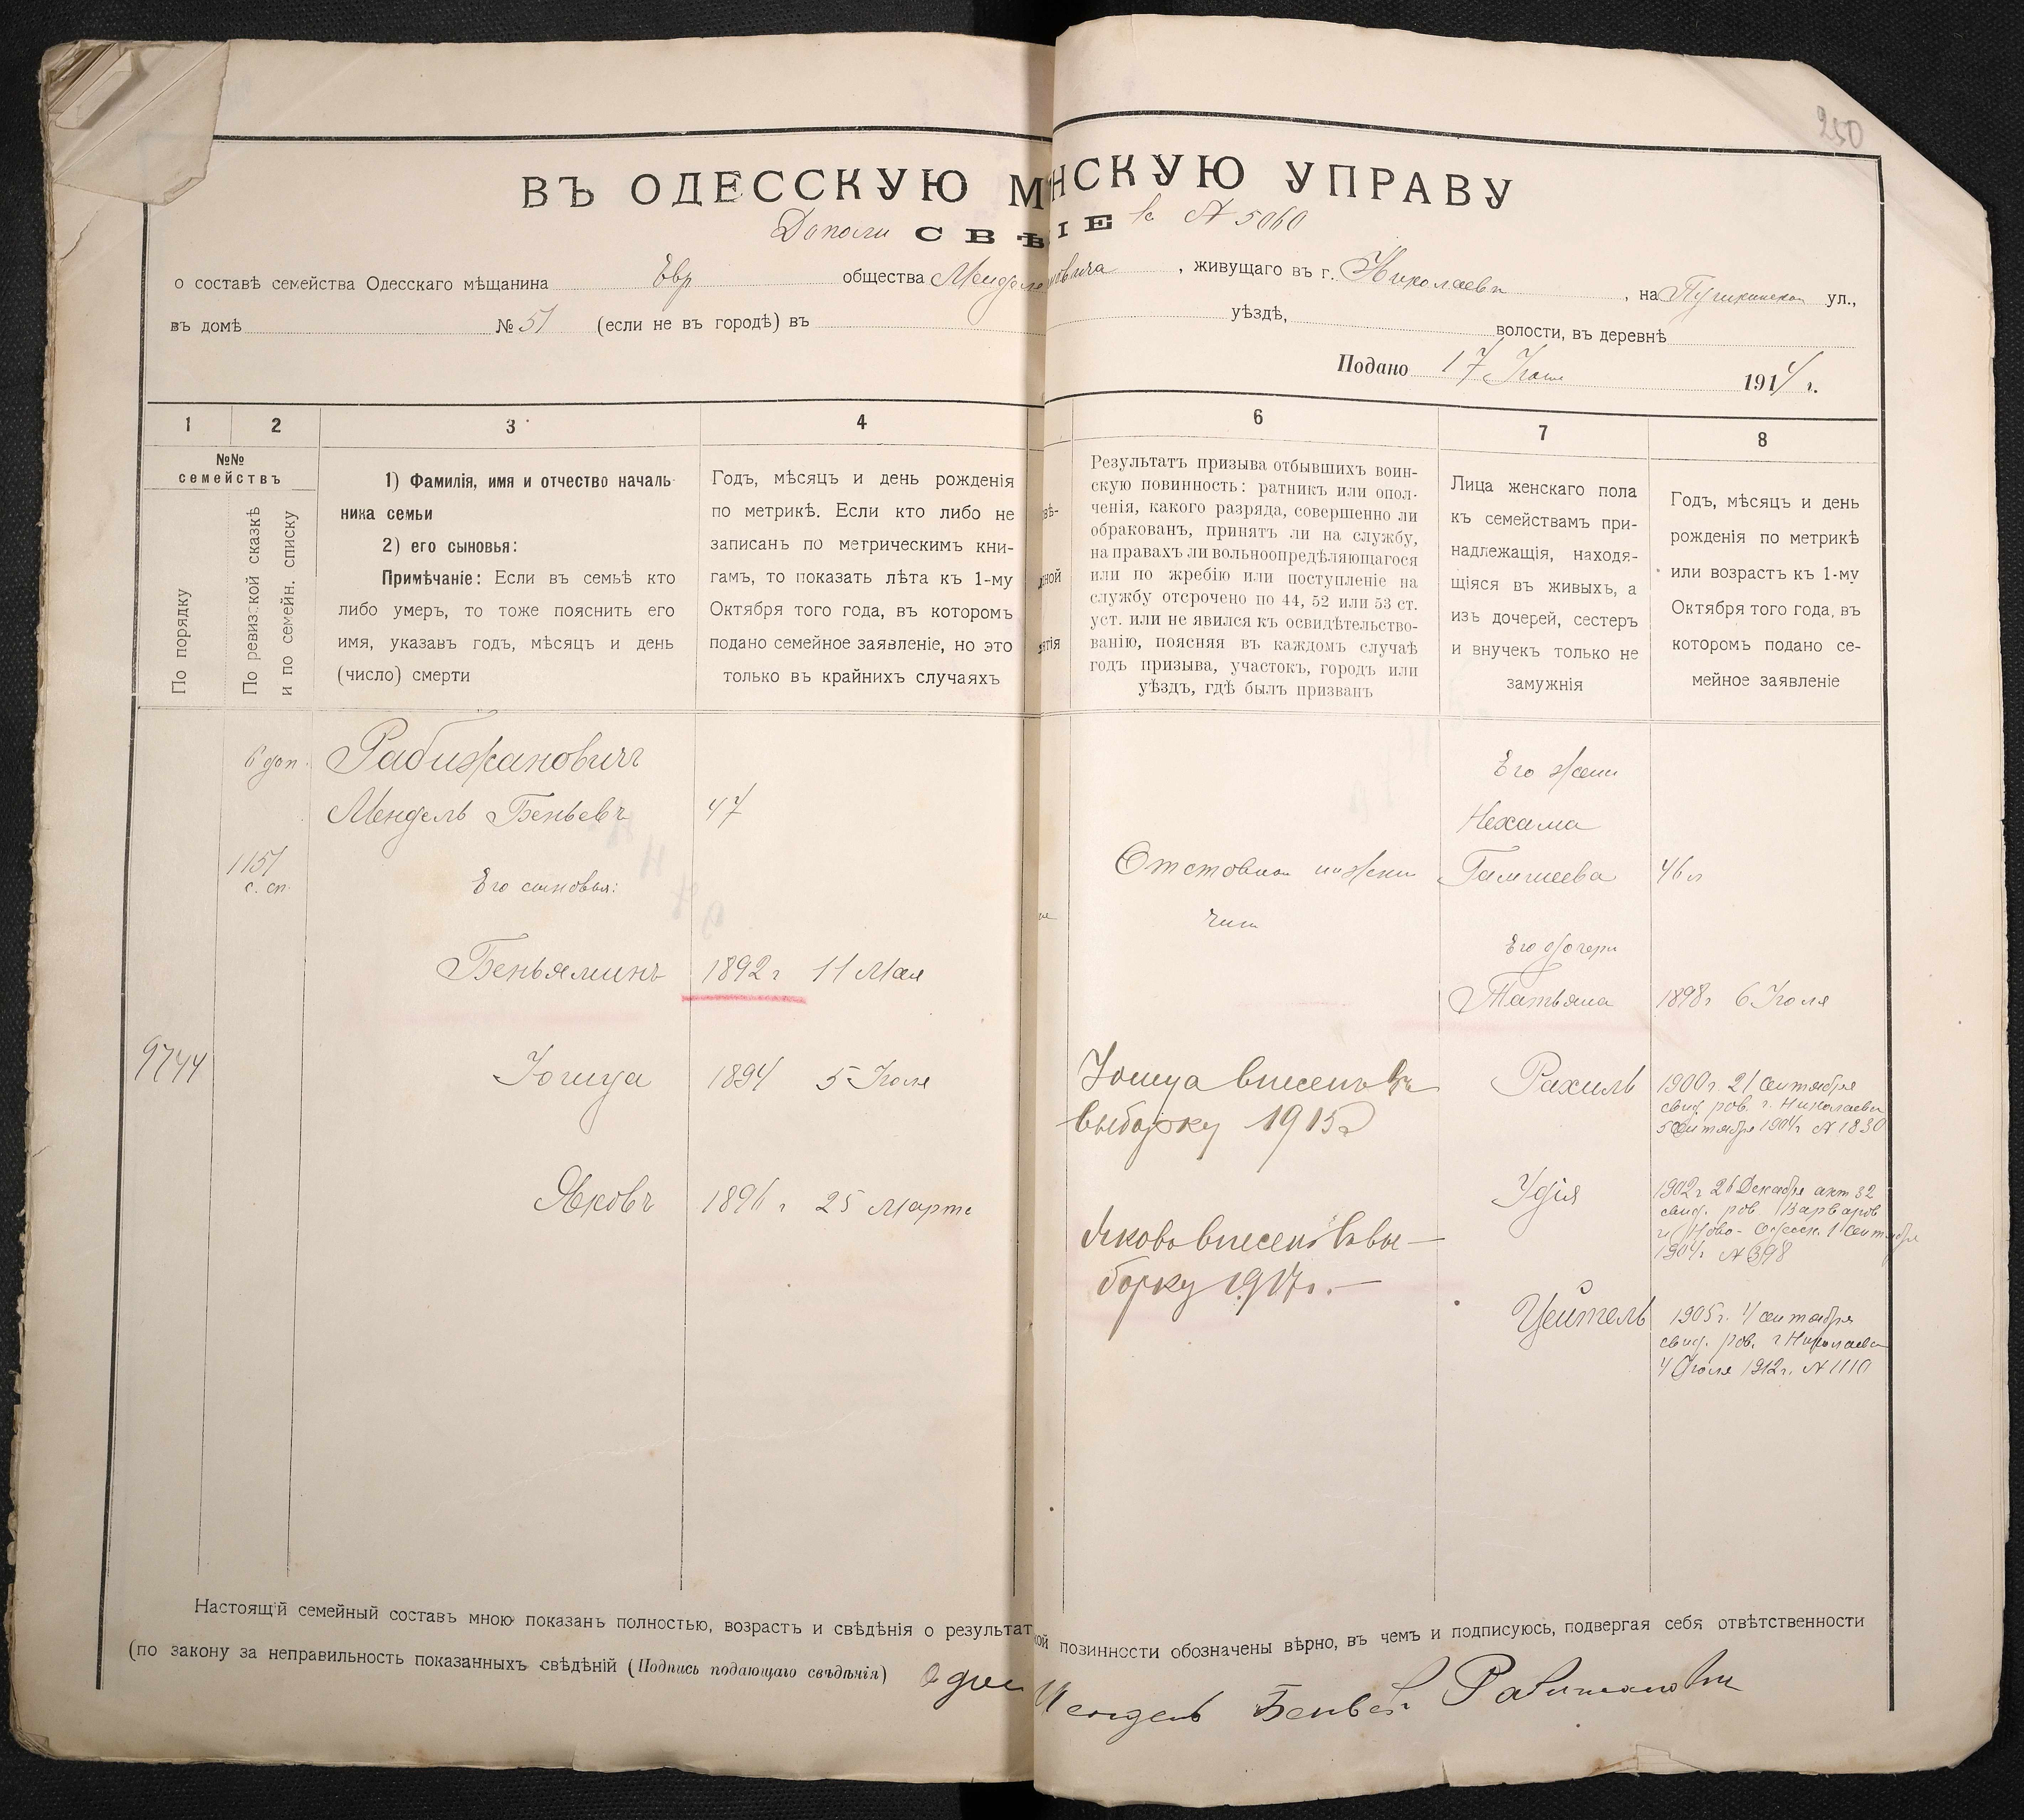 250
ВЪ ОДЕССКУЮ М НСКУЮ УПРАВУ
СВѢ ІЕ къ № 5060
о составѣ семейства Одесскаго мѣщанина Евр общества , живущаго въ г. Николаевѣ , на Пушкинской ул.,
въ домѣ № 51 (если не въ городѣ) въ уѣздѣ, волости, въ деревнѣ
Подано 17 1914 г.
1 2 3 4 6 7 8
№№ семействъ
По порядку
По ревизской сказкѣ
и по семейн. списку
1) Фамилія, имя и отчество началь-
ника семьи
2) его сыновья:
Примѣчаніе: Если въ семьѣ кто
либо умеръ, то тоже пояснить его
имя, указавъ годъ, мѣсяцъ и день
(число) смерти
Годъ, мѣсяцъ и день рожденія
по метрикѣ. Если кто либо не
записанъ по метрическимъ кни-
гамъ, то показать лѣта къ 1-му
Октября того года, въ которомъ
подано семейное заявленіе, но это
только въ крайнихъ случаяхъ
Результатъ призыва отбывшихъ воин-
скую повинность: ратникъ или опол-
ченія, какого разряда, совершенно ли
обракованъ, принятъ ли на службу,
на правахъ ли вольноопредѣляющагося
или по жребію или поступленіе на
службу отсрочено по 44, 52 или 53 ст.
уст. или не явился къ освидѣтельство-
ванію, поясняя въ каждомъ случаѣ
годъ призыва, участокъ, городъ или
уѣздъ, гдѣ былъ призванъ
Лица женскаго пола
къ семействамъ при-
надлежащія, находя-
щіяся въ живыхъ, а
изъ дочерей, сестеръ
и внучекъ только не
замужнія
Годъ, мѣсяцъ и день
рожденія по метрикѣ
или возрастъ къ 1-му
Октября того года, въ
которомъ подано се-
мейное заявленіе
6 доп. Рабижановичъ
Мендель Беньевъ 47
1151
с. сп.
Его сыновья:
Беньяминъ 1892 г 11 Мая
9744 Іошуа 1894 5 Іюля
Яковъ 1896 г 25 Марта
Іошуа внесенъ въ
выборку 1915 г
Яковъ внесенъ въ вы-
борку 1917 г.
Его жена
Нехама
46 л
Его дочери
Татьяна 1898 г 6 Іюля
Рахиль 1900 г. 21 Сентября
свид. рав. г. Николаева
5 Сентября 1904 г № 1830
Удія 1902 г 26 Декабря акт 32
свид. рав Варваров
и Ново-Одесск. 1 Сентября
1904 г № 398
Цейтель 1905 г. 4 сентября
свид. рав. г Николаева
4 Іюля 1912 г. № 1110
Настоящій семейный составъ мною показанъ полностью, возрастъ и свѣдѣнія о результат ой повинности обозначены вѣрно, въ чемъ и подписуюсь, подвергая себя отвѣтственности
(по закону за неправильность показанныхъ свѣдѣній (Подпись подающаго свѣдѣнія)
Мендель Беньев Рабижанович